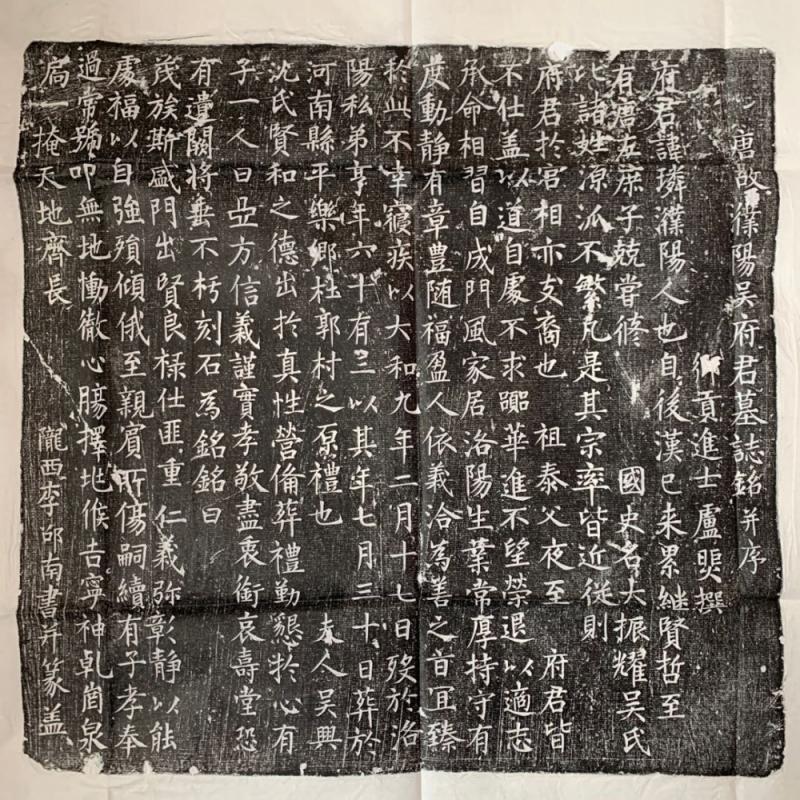 唐故濮陽吳府君墓誌銘并序
鄉貢進士盧㷡撰
府君諱璘濮陽人也自後漢已来累継賢哲至
有唐左庶子兢嘗脩　國史名大振耀吳氏
比諸姓源泒不繁凡是其宗率皆近從則
府君於宫相亦支裔也　祖泰父夜至　府君皆
不仕盖以道自處不求䎹華進不望榮退以適志
承命相習自成門風家居洛陽生業常厚持守有
度動静有章豊随福盈人依義洽為善之音冝臻
於此不幸寢疾以大和九年二月十七日歿於洛
陽私弟享年六十有三以其年七月三十日葬於
河南縣平樂鄉杜郭村之原禮也　夫人吳興
沈氏賢和之德出於真性營俻葬禮勤懇於心有
子一人曰亞方信義謹實孝敬盡衷銜哀壽堂恐
有遺闕将垂不朽刻石為銘銘曰
茂族斯盛門出賢良禄仕匪重仁義弥彰静以能
處福以自強殞傾俄至親賓所傷嗣續有子孝奉
過常號叩無地慟徹心腸擇地候吉寧神乹崗泉
扃一掩天地齊長　隴西李邱南書并篆盖